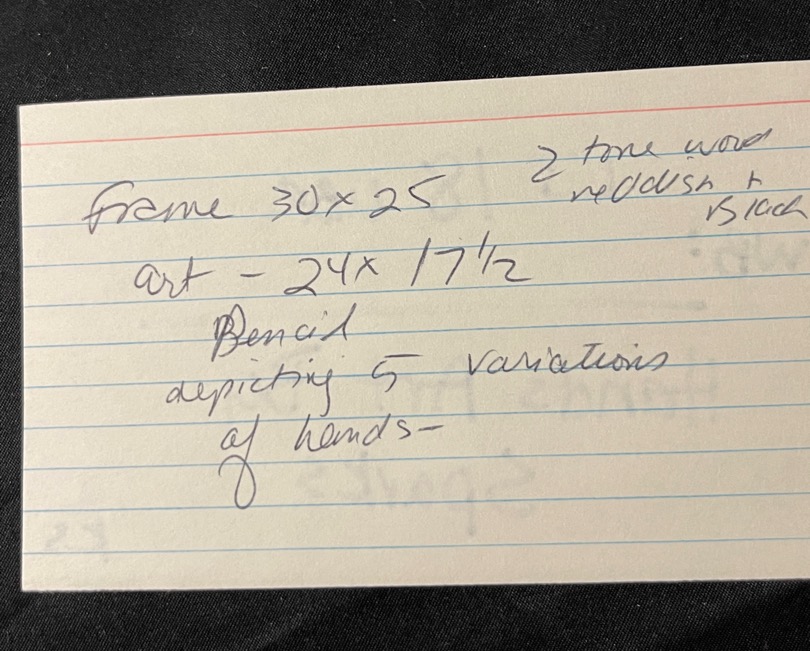 Frame 30x25
2 tone wood
reddish +
Black
art - 24x 17 1/2
Pencil
depicting 5 variations
of hands-